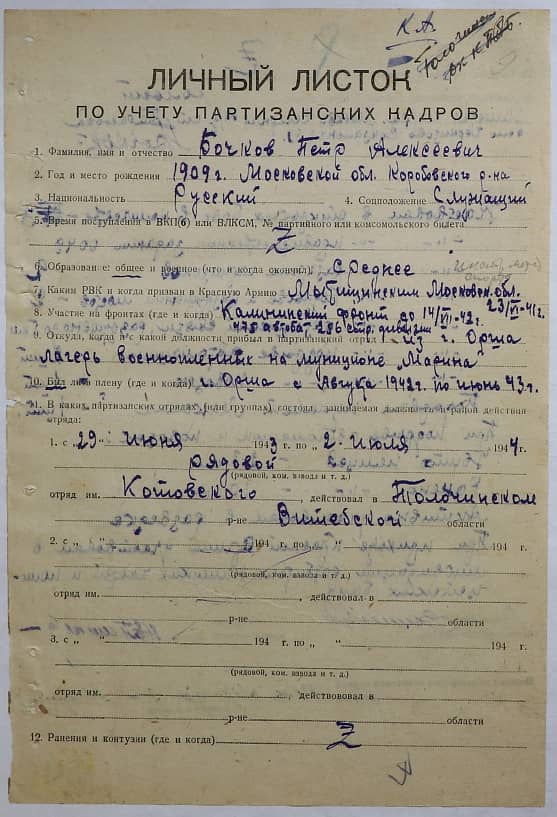 К.А.
ЛИЧНЫЙ ЛИСТОК
ПО УЧЕТУ ПАРТИЗАНСКИХ КАДРОВ
1. Фамилия, имя и отчество Бочков Петр Алексеевич
2. Год и место рождения 1909 г. Московской обл. Коробовского р-на
3. Национальность Русский 4. Соцположение Служащий
5. Время поступления в ВКП(б) или ВЛКСМ, № партийного или комсомольского билета
Z
6. Образование: общее и военное (что и когда окончил) среднее
7. Каким РВК и когда призван в Красную Армию Московск. обл.
23/VI-41 г.
8. Участие на фронтах (где и когда) Калининский фронт до 14/VII-42 г.
стр. дивизии
9. Откуда, когда и с какой должности прибыл в партизанский отряд из г. Орша
лагерь военнопленных на
10. Был ли в плену (где и когда) г. Орша с Августа 1942 г. по июнь 43 г.
11. В каких партизанских отрядах (или группах) состоял, занимаемая должность и район действия
отряда:
1. с „29“ июня 1943 г. по „2“ июля 1944 г.
рядовой
(рядовой, ком. взвода и т. д.)
отряд им. Котовского, действовал в Толочинском
р-не Витебской области
2. с „ “ 194 г. по „ “ 194 г.
(рядовой, ком. взвода и т. д.)
отряд им. , действовал в
р-не области
3. с „ “ 194 г. по „ “ 194 г.
(рядовой, ком. взвода и т. д.)
отряд им. , действововал в
р-не области
12. Ранения и контузии (где и когда) Z